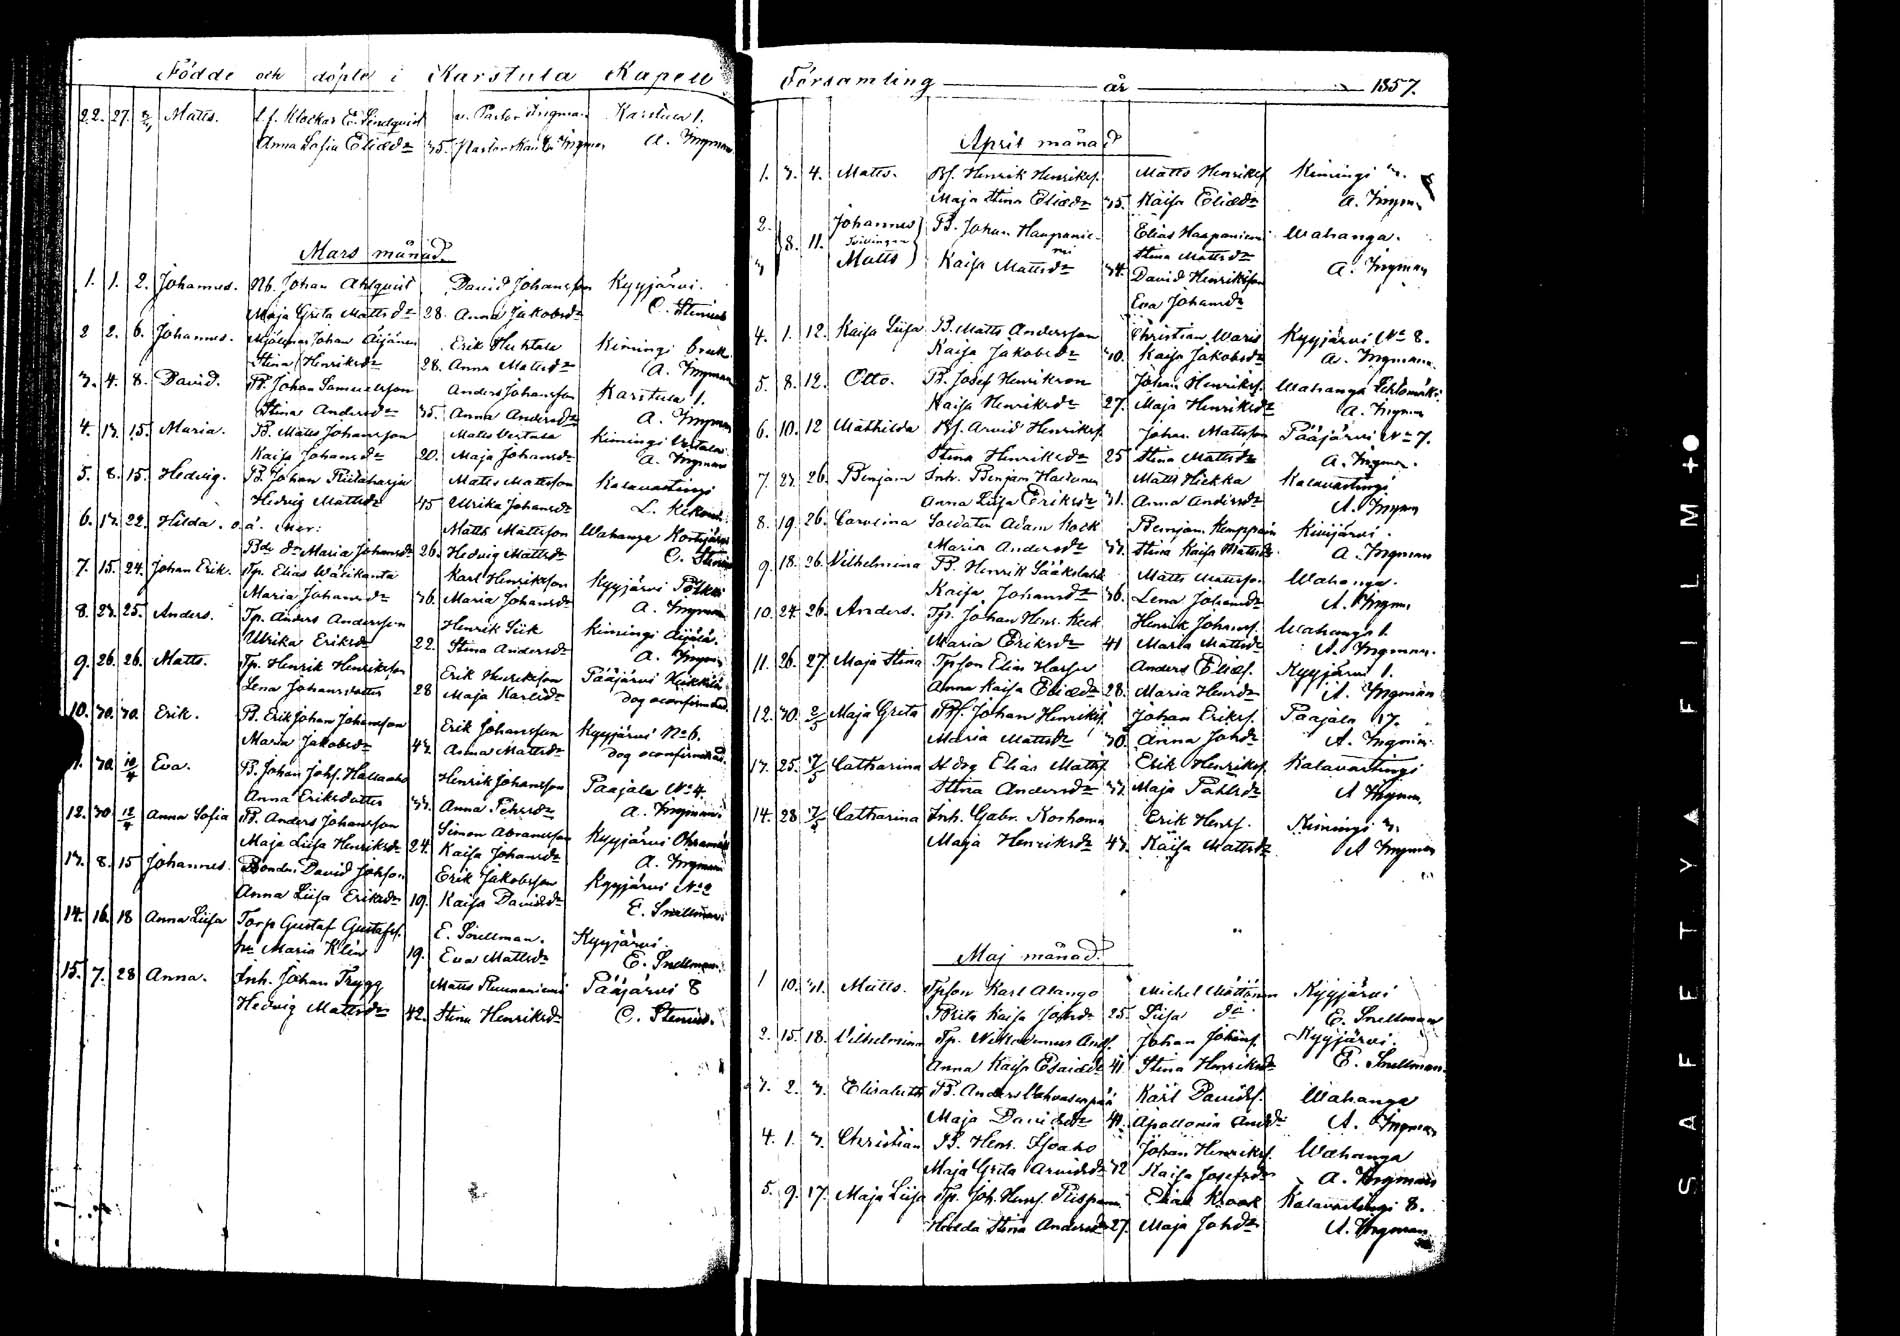 Födde och döpte i Karstula Kapell
22. 27. Matts. Klockar E. Lindqvist Pastor Ingman Karstula 1.
Anna Sofia Eliæd:r 35. A. Ingman
Mars månad.
1. 1. 2. Johannes. Nb. Johan Ahlqvist David Johansson Kyyjärvi.
Maja Greta Mattsd:r 28. Anna Jakobsd:r C. Stenius
2 2. 6. Johannes. Johan Äijänen Erik Huhtala Kimingi bruk.
Stina Henriksd:r 28. Anna Mattsd:r A. Ingman
3. 4. 8. David. B. Johan Samuelsson Anders Johansson Karstula 1.
Stina Andersd:r 35. Anna Andersd:r A. Ingman
4. 13. 15. Maria. B. Matts Johansson Matts Vertala Kimingi Vertala
Kaisa Johansd:r 20. Maja Johansd:r A. Ingman
5. 8. 15. Hedvig. B. Johan Matts Mattsson Kalavastingi
Hedvig Mattsd:r 45 Ulrika Johansd:r L.
6. 13. 22. Hilda. o. ä. Matts Mattsson Wahanga
Bd:r d:r Maria Johansd:r 26. Hedvig Mattsd:r C. Stenius
7. 15. 24. Johan Erik. Tp. Elias Karl Henriksson Kyyjärvi Pölkki
Maria Johansd:r 36. Maria Johansd:r A. Ingman
8. 23. 25. Anders. Tp. Anders Andersson Henrik Siik Kimingi Äijälä.
Ulrika Eriksd:r 22. Stina Andersd:r A. Ingman
9. 26. 26. Matts. Tp. Henrik Henriksson Erik Henriksson Pääjärvi Heikkilä
Lena Johansdotter 28 Maja Karlsd:r dog oconfirmerad.
10. 30. 30. Erik. B. Erik Johan Johansson Erik Johansson Kyyjärvi No 6.
Maria Jakobsd:r 43. Anna Mattsd:r dog oconfirmerad.
30. 10/4 Eva. B. Johan Johs. Hallaaho Henrik Johansson Paajala No 4.
Anna Eriksdotter 33. Anna Petersd:r A. Ingman.
12. 30 12/4 Anna Sofia B. Anders Johansson Simon Abramsson Kyyjärvi
Maja Liisa Henriksd:r 24. Kaisa Johansd:r A. Ingman
13. 8. 15 Johannes Bonden David Johsson Erik Jakobsson Kyyjärvi No 2
Anna Liisa Eriksd:r 19. Kaisa Davidsd:r E. Snellman
14. 16. 18 Anna Liisa Torp Gustaf Gustafss. E. Snellman. Kyyjärvi.
hu Maria Klin 19. Eva Mattsd:r E. Snellman.
15. 7. 28 Anna. Inh. Johan Trygg Matts Pääjärvi 8
Hedvig Mattsd:r 42. Stina Henriksd:r C. Stenius.
Församling år 1857.
April månad
1. 3. 4. Matts. Bs. Henrik Henrikss. Matts Henrikss Kimingi 3.
Maja Stina Eliæd:r 35. Kaisa Eliæd:r A. Ingman
2. 8. 11. Johannes B. Johan Haapanie- Elias Haapaniemi Wahanga.
Tvillingar mi Stina Mattsd:r
3 Matts Kaisa Mattsd:r 34. David Henriksson A. Ingman
Eva Johansd:r
4. 1. 12. Kaisa Liisa B. Matts Andersson Christian Waris Kyyjärvi No 8.
Kaisa Jakobsd:r 30. Kaisa Jakobsd:r A. Ingman.
5. 8. 12. Otto. B. Josef Henrikson Johan Henrikss. Wahanga Lehtomäki
Kaisa Henriksd:r 27. Maja Henriksd:r A. Ingman
6. 10. 12 Mathilda Bs. Arvid Henrikss. Johan Mattsson Pääjärvi No 7.
Stina Henriksd:r 25 Stina Mattsd:r A. Ingman.
7. 23. 26. Benjam Inh. Benjam Matts Hiekka Kalavastingi
Anna Liisa Eriksd:r 31. Anna Andersd:r A. Ingman
8. 19. 26. Carolina Soldaten Adam Kock Benjam. Kemppain Kivijärvi.
Maria Andersd:r 33. Stina Kaisa Mattsd:r A. Ingman
9. 18. 26. Vilhelmina B. Henrik Matts Mattsson Wahanga.
Kaisa Johansd:r 36. Lena Johansd:r A. Ingman
10. 24. 26. Anders. Tp. Johan Henr. Keck Henrik Johanss. Wahanga 1.
Maria Eriksd:r 41 Maria Mattsd:r A. Ingman.
11. 26. 27. Maja Stina Tpson Elias Anders Eliass. Kyyjärvi 1.
Anna Kaisa Eliæd:r 28. Maria Henrsd:r A. Ingman
12. 30. 2/5 Maja Greta Bs. Johan Henrikss. Johan Erikss. Paajala 17.
Maria Mattsd:r 30. Anna Johsd:r A. Ingman.
13. 25. 3/5 Catharina N dog Elias Mattss. Erik Henrikss. Kalavastingi
Stina Andersd:r 33. Maja Påhlsd:r A Ingman.
14. 28 3/5 Catharina Inh. Gabr. Korhonen Erik Henrs. Kimingi 3.
Maja Henriksd:r 43. Kaisa Mattsd:r A Ingman
Maj månad.
1 10. 31. Matts. Tpson Karl Alango Michel Möttönen Kyyjärvi
Brita Kaisa Johsd:r 25. Liisa d:o E. Snellman
2. 15. 18. Vilhelmina Tp. Nikodemus Ands. Johan Johans. Kyyjärvi.
Anna Kaisa Esaiæd:r 41 Stina Henriksd:r E. Snellman.
3. 2. 3. Elisabeth B. Anders Karl Davids. Wahanga
Maja Davidsd:r 40. Apollonia Andsd:r A. Ingman
4. 1. 3. Christian B. Henr. Johan Henrikss. Wahanga
Maja Greta Arvidsd:r 32 Kaisa Josefsd:r A. Ingman
5. 9. 17. Maja Liisa Tp. Joh. Henrs. Piispanen Elias Krook Kalavastingi 8.
Hulda Stina Andersd:r 27. Maja Johsd:r A. Ingman
SAFETY A FILM